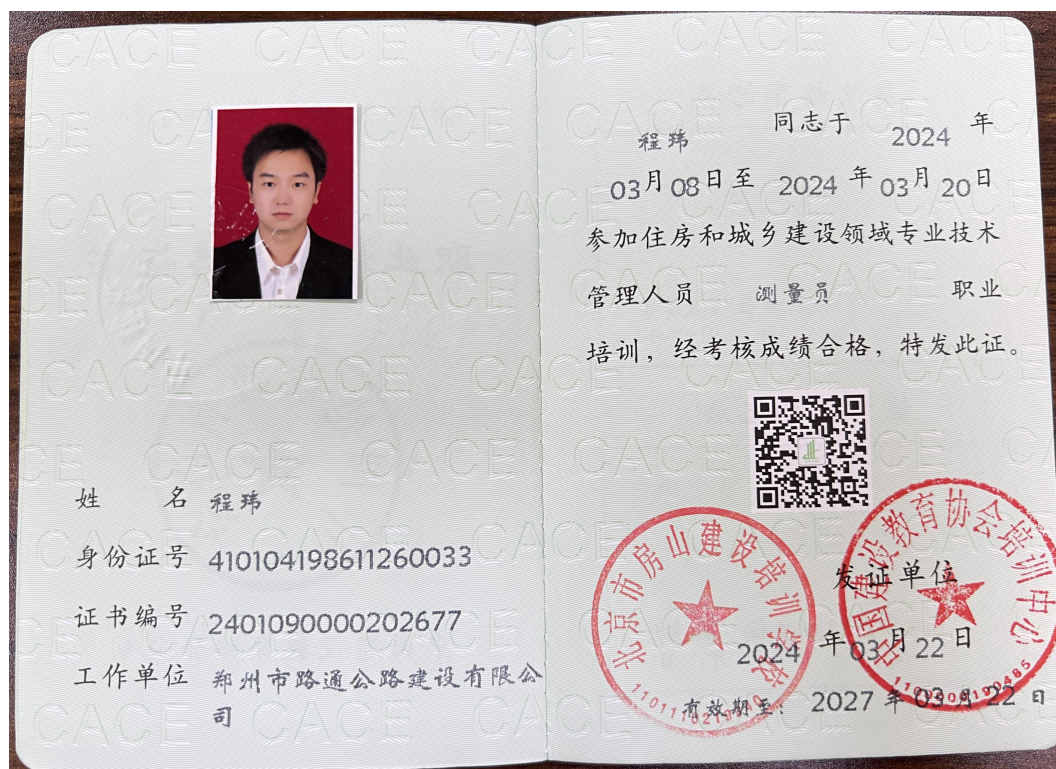 CACE
姓 名 程玮
身份证号 410104198611260033
证书编号 2401090000202677
工作单位 郑州市路通公路建设有限公
司
程玮 同志于 2024 年
03月08日至 2024 年 03月 20日
参加住房和城乡建设领域专业技术
管理人员 测量员 职业
培训，经考核成绩合格，特发此证。
北京市房山建设培训学校
中国建设教育协会培训中心
发证单位
2024 年 03 月 22 日
有效期至： 2027 年 03 月 22 日